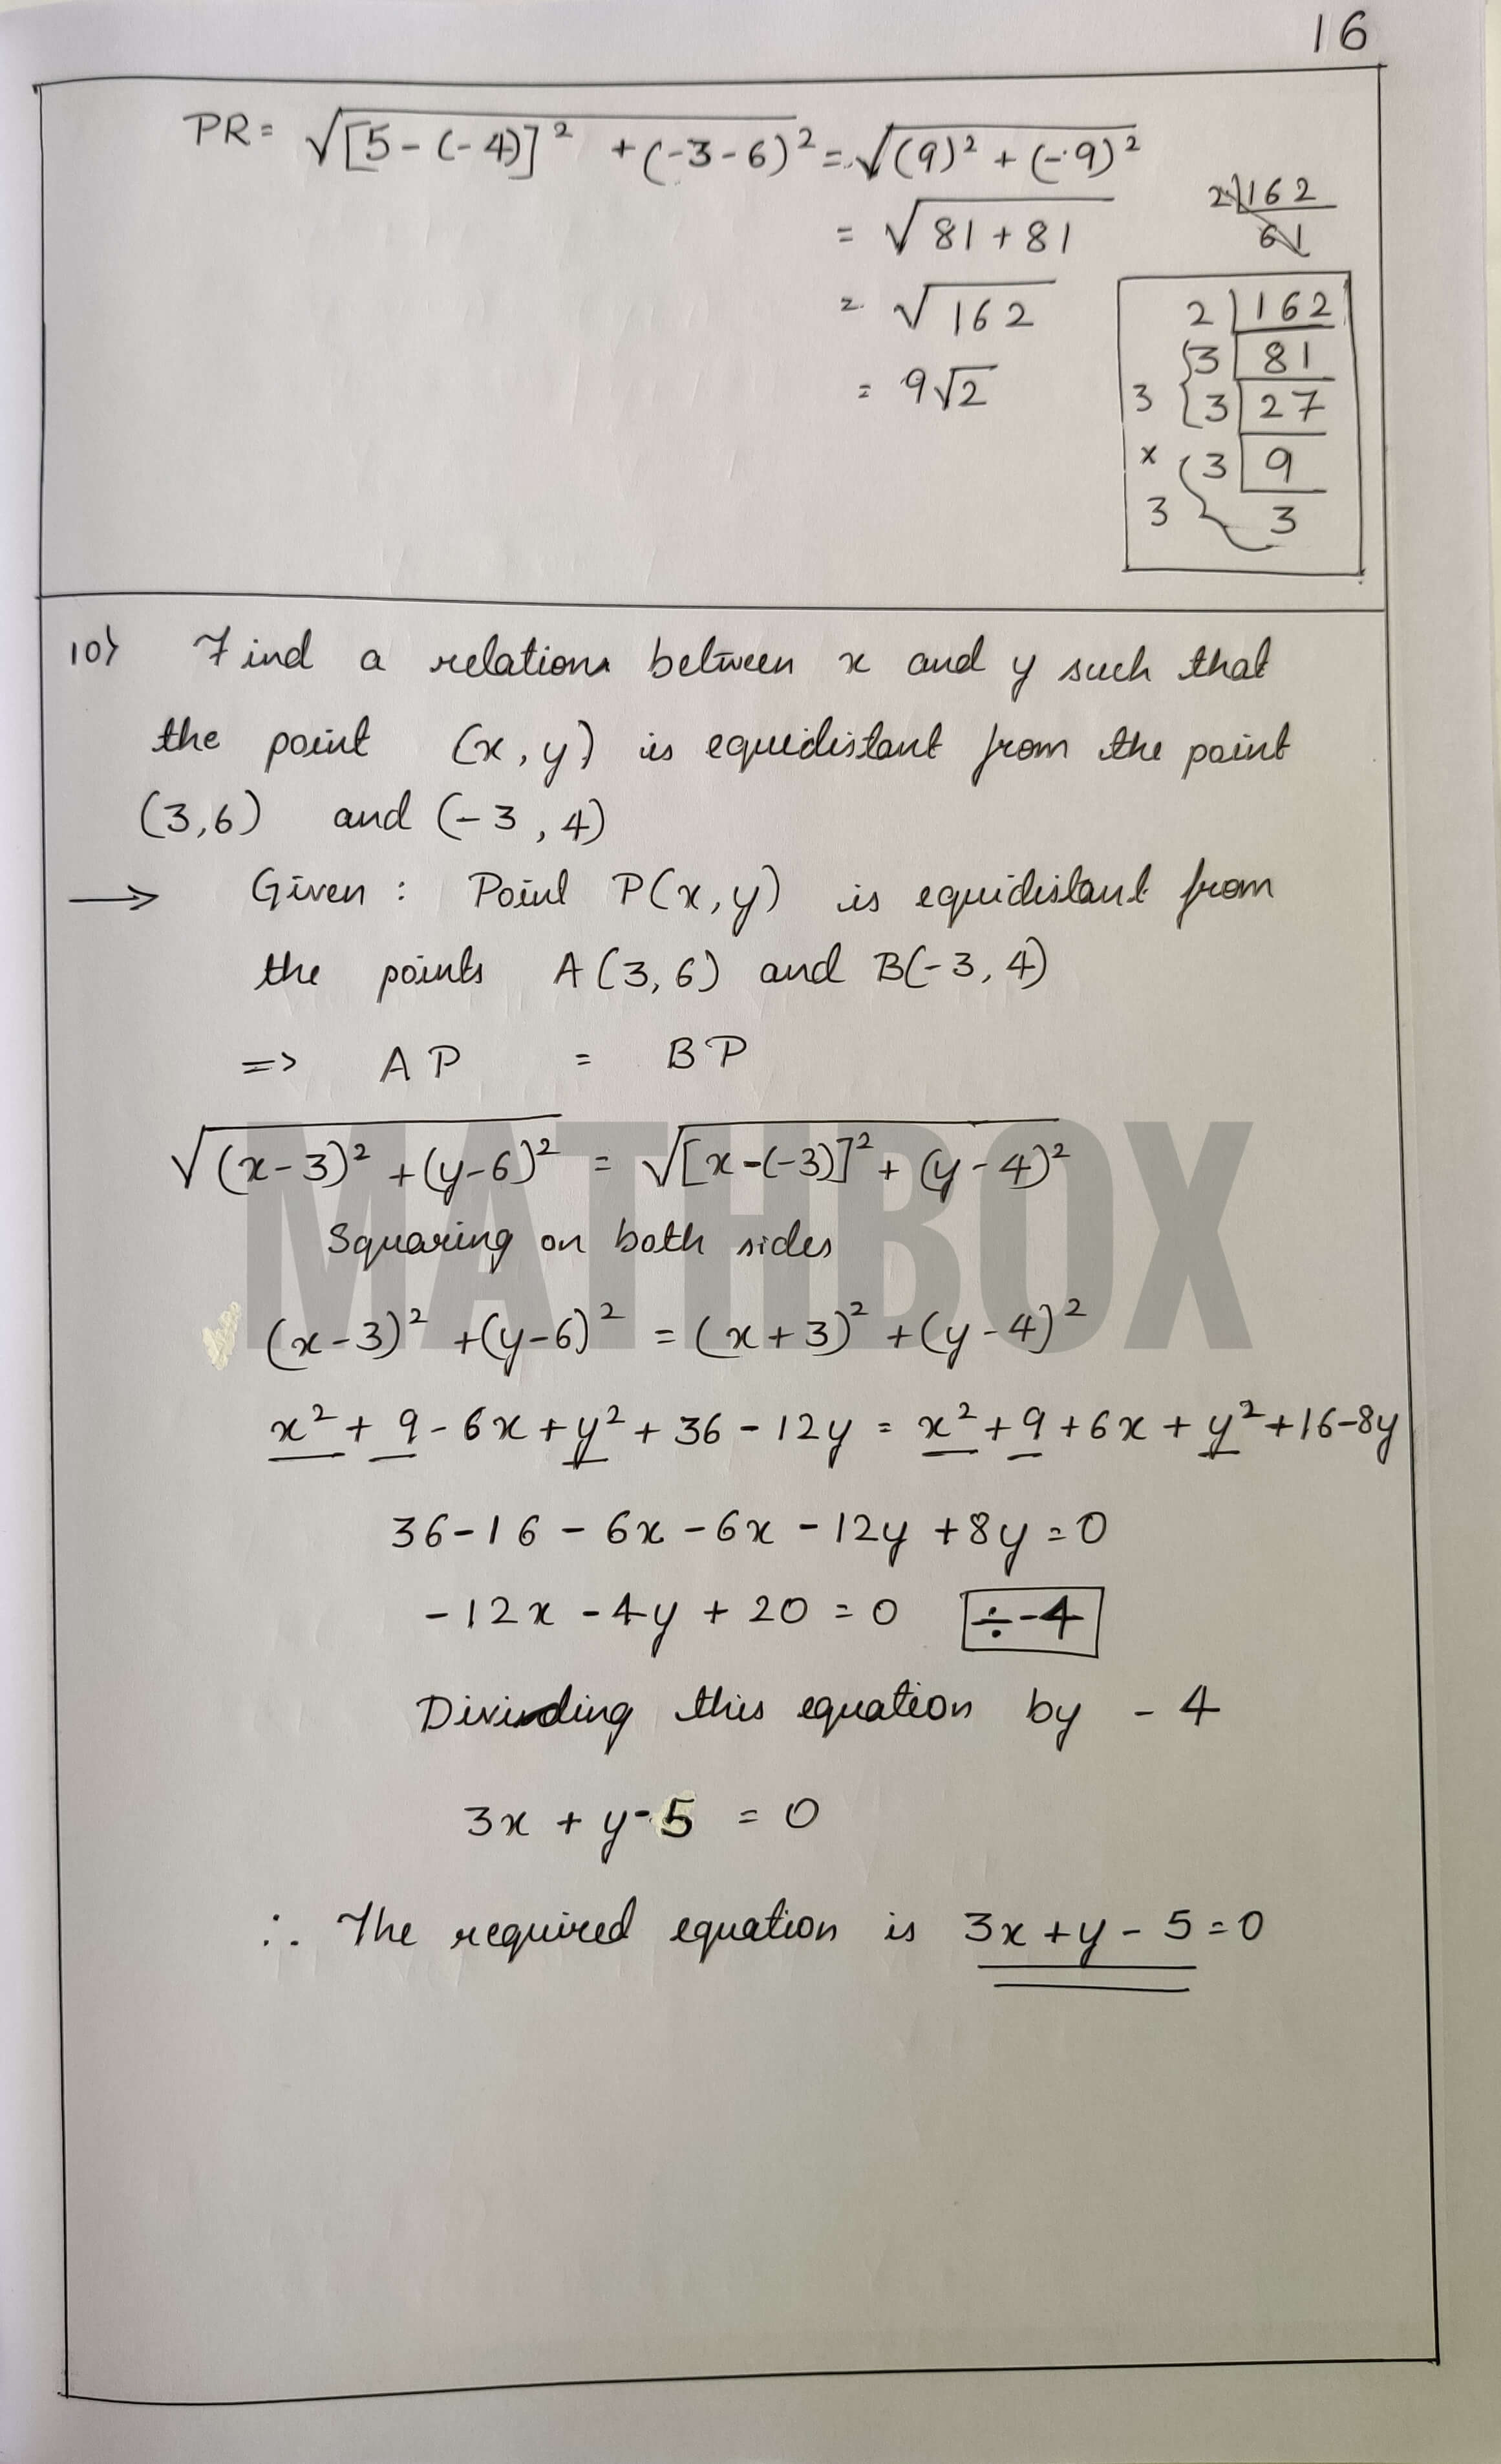 16
PR = √[5-(-4)]² + (-3-6)² = √(9)² + (-9)²
= √81+81
= √162
= 9√2
2 | 162
61
2 | 162
3 | 81
3 3 | 27
× 3 | 9
3 3
10) Find a relation between x and y such that
the point (x, y) is equidistant from the point
(3,6) and (-3, 4)
→ Given : Point P(x, y) is equidistant from
the points A(3, 6) and B(-3, 4)
=> AP = BP
√(x-3)² + (y-6)² = √[x-(-3)]² + (y-4)²
Squaring on both sides
(x-3)² + (y-6)² = (x+3)² + (y-4)²
x² + 9 - 6x + y² + 36 - 12y = x² + 9 + 6x + y² + 16 - 8y
36 - 16 - 6x - 6x - 12y + 8y = 0
-12x - 4y + 20 = 0 ÷ -4
Dividing this equation by - 4
3x + y - 5 = 0
∴ The required equation is 3x + y - 5 = 0
MATHBOX